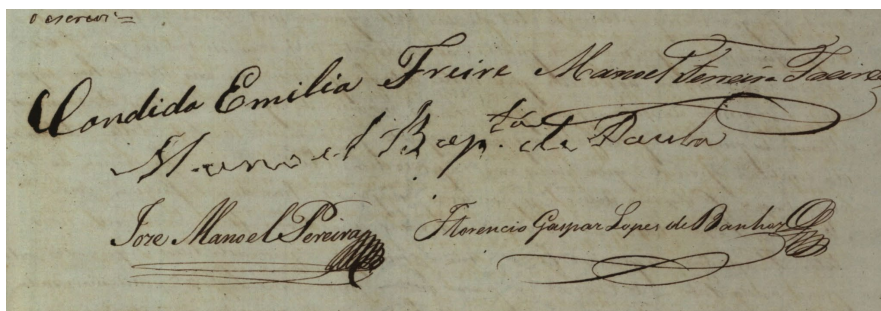 o escrevi =
Candida Emilia Freire Manoel Ferreira
Manoel Bap.ta de Paula
Joze Manoel Pereira Florencio Gaspar Lopes de Banhos